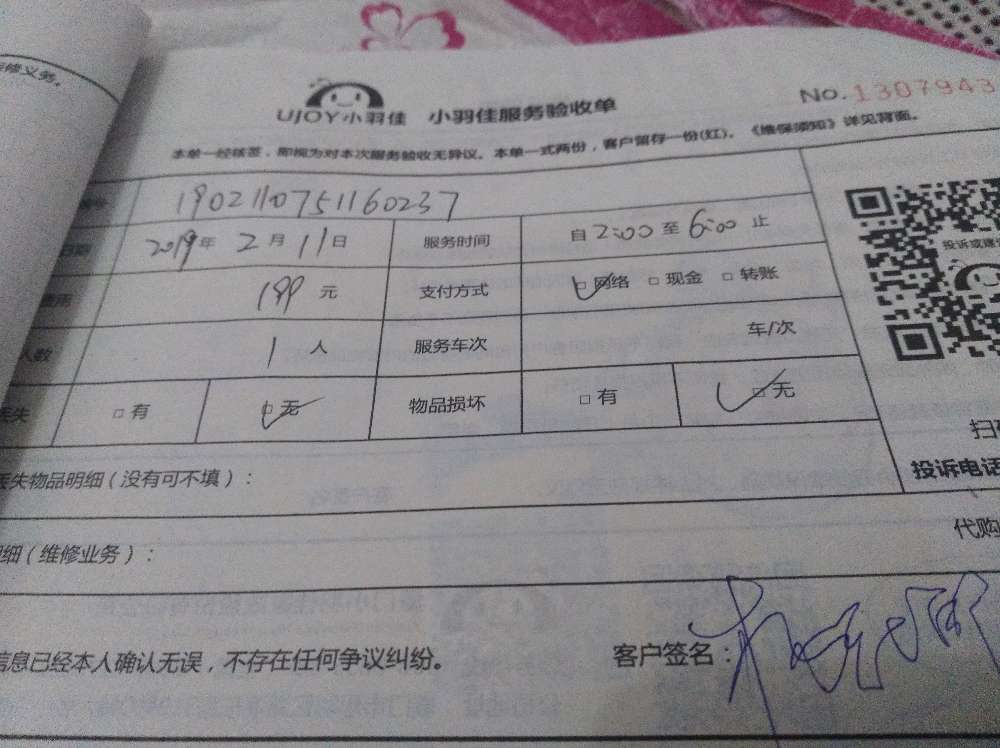 修义务。
UJOY小羽佳 小羽佳服务验收单 No.1307943
本单一经核签，即视为对本次服务验收无异议。本单一式两份，客户留存一份(红)。《维保须知》详见背面。
1902110751160237
日期 2019年2月11日 服务时间 自2:00至6:00止
费用 199元 支付方式 □网络 □现金 □转账
人数 1人 服务车次 车/次
丢失 □有 □无 物品损坏 □有 □无
投诉或
扫
投诉电话
丢失物品明细（没有可不填）：
代购
细（维修业务）：
信息已经本人确认无误，不存在任何争议纠纷。
客户签名：